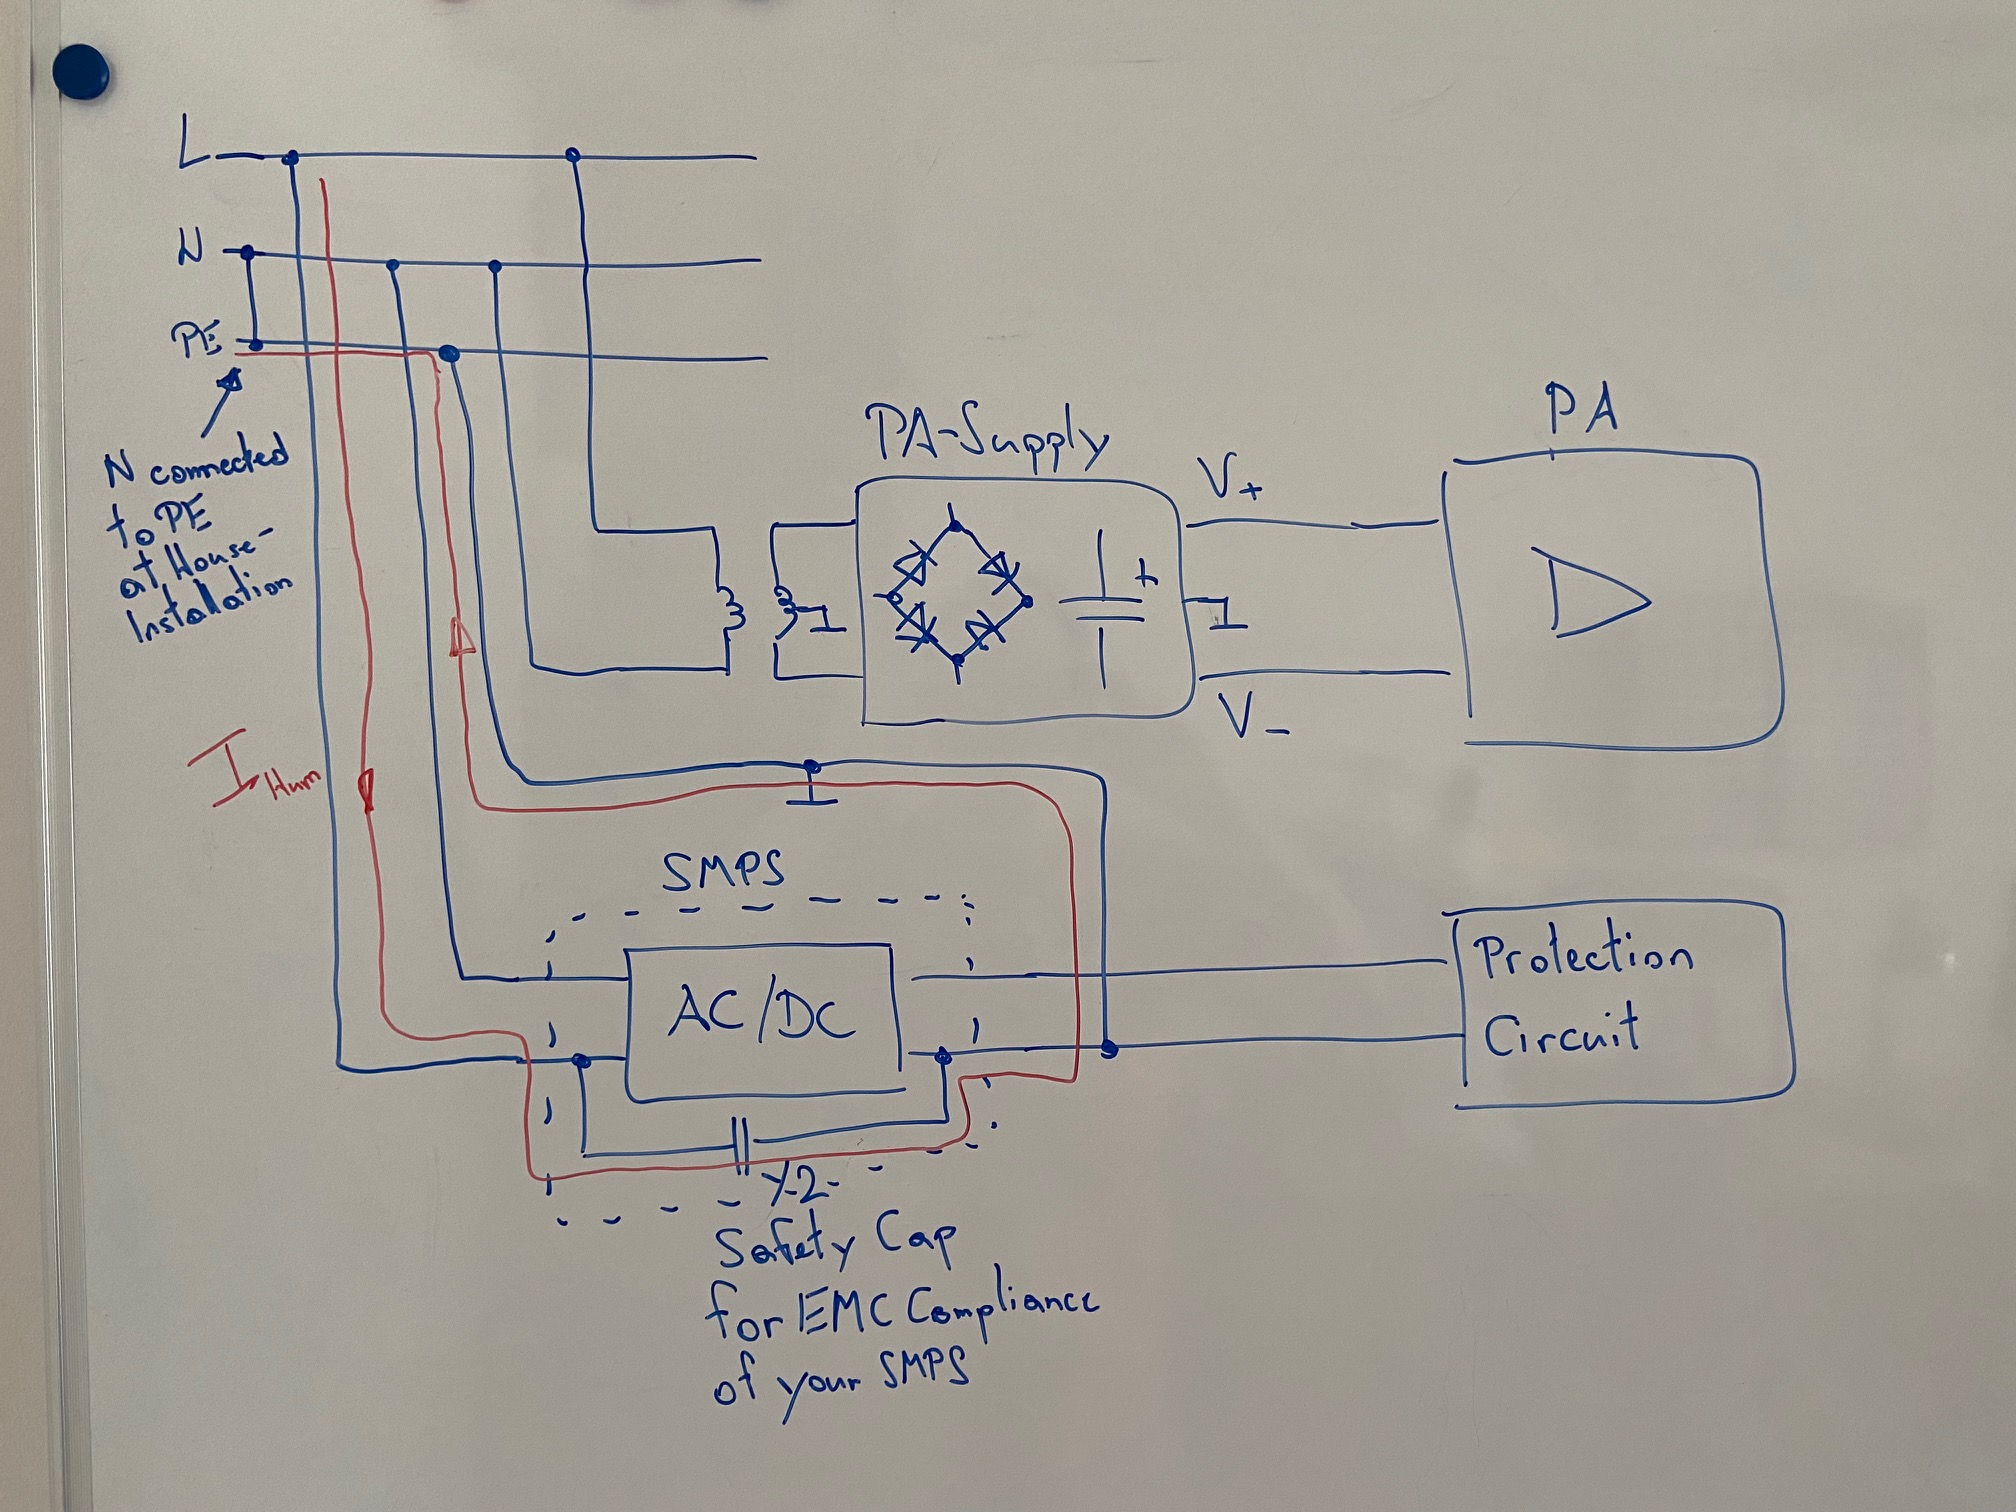 L
N
PE
N connected
to PE
at House-
Installation
I Hum
PA-Supply
+
V+
V-
PA
SMPS
AC/DC
Protection
Circuit
Y2
Safety Cap
for EMC Compliance
of your SMPS